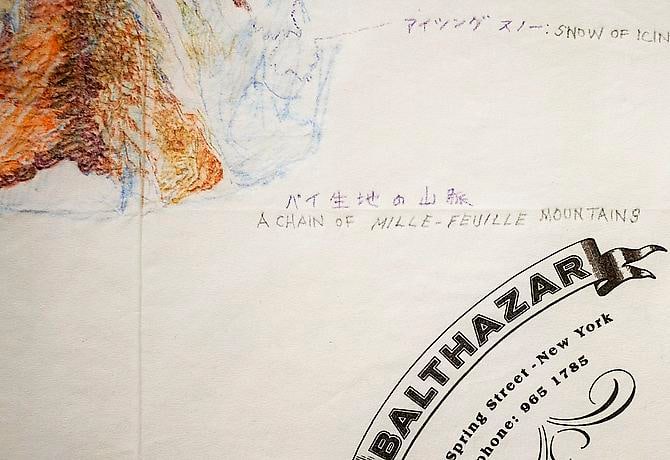 アイシング スノー: SNOW OF ICIN
パイ生地の山脈
A CHAIN OF MILLE-FEUILLE MOUNTAINS
BALTHAZAR
Spring Street - New York
phone: 965 1785